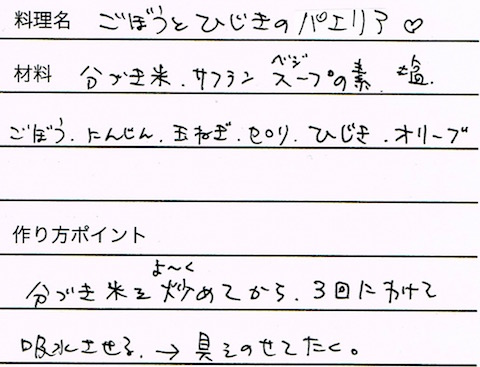 料理名 ごぼうとひじきのパエリア♡
材料 分づき米.サフラン ベジスープの素.塩.
ごぼう.にんじん.玉ねぎ.セロリ.ひじき.オリーブ
作り方ポイント
よ〜く
分づき米を炒めてから.3回にわけて
吸水させる.→具をのせてたく。